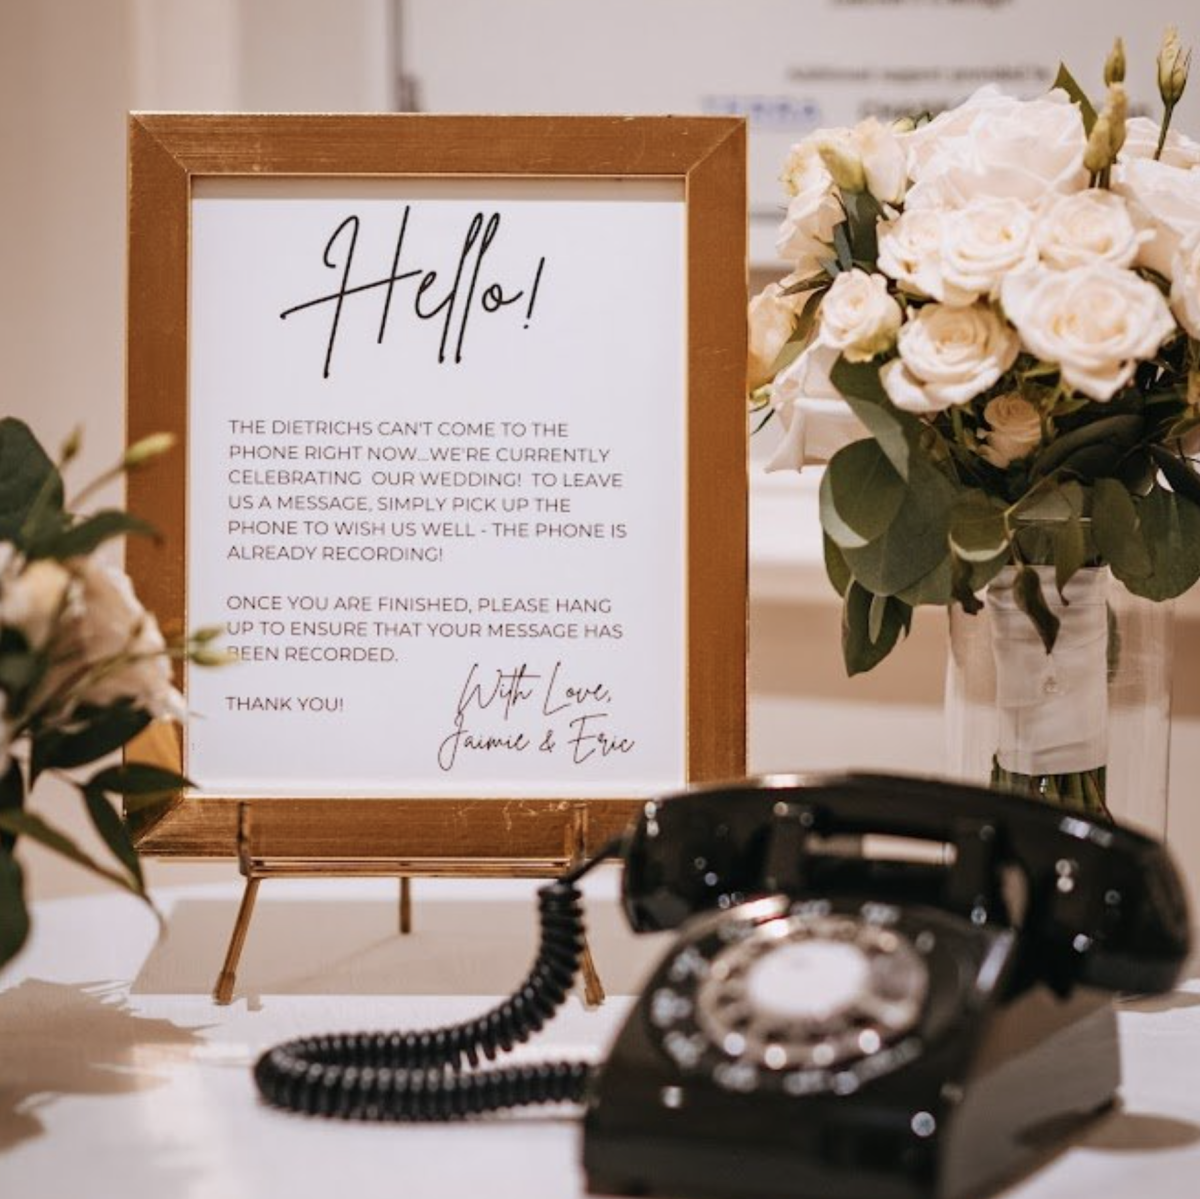 Additional support provided by
TERRA
Hello!
THE DIETRICHS CAN'T COME TO THE
PHONE RIGHT NOW...WE'RE CURRENTLY
CELEBRATING OUR WEDDING! TO LEAVE
US A MESSAGE, SIMPLY PICK UP THE
PHONE TO WISH US WELL - THE PHONE IS
ALREADY RECORDING!
ONCE YOU ARE FINISHED, PLEASE HANG
UP TO ENSURE THAT YOUR MESSAGE HAS
BEEN RECORDED.
THANK YOU!
With Love,
Jaimie & Eric